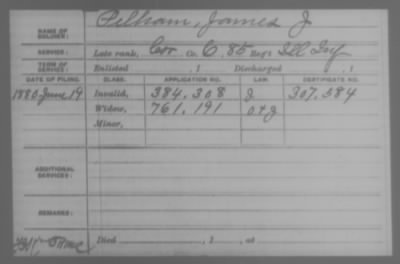 NAME OF SOLDIER: Pelham, James J
SERVICE: Late rank, Cor Co. C, 85 Reg't Ill Inf
TERM OF SERVICE: Enlisted , 1 Discharged , 1
DATE OF FILING. CLASS. APPLICATION NO. LAW. CERTIFICATE NO.
1880 June 19 Invalid, 384.308 J 307.584
Widow, 761.191 O+J
Minor,
ADDITIONAL SERVICES:
REMARKS:
Died , 1 , at